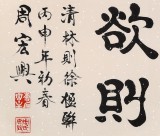 欲則
清林則徐極聯
丙申年初春
周宏興